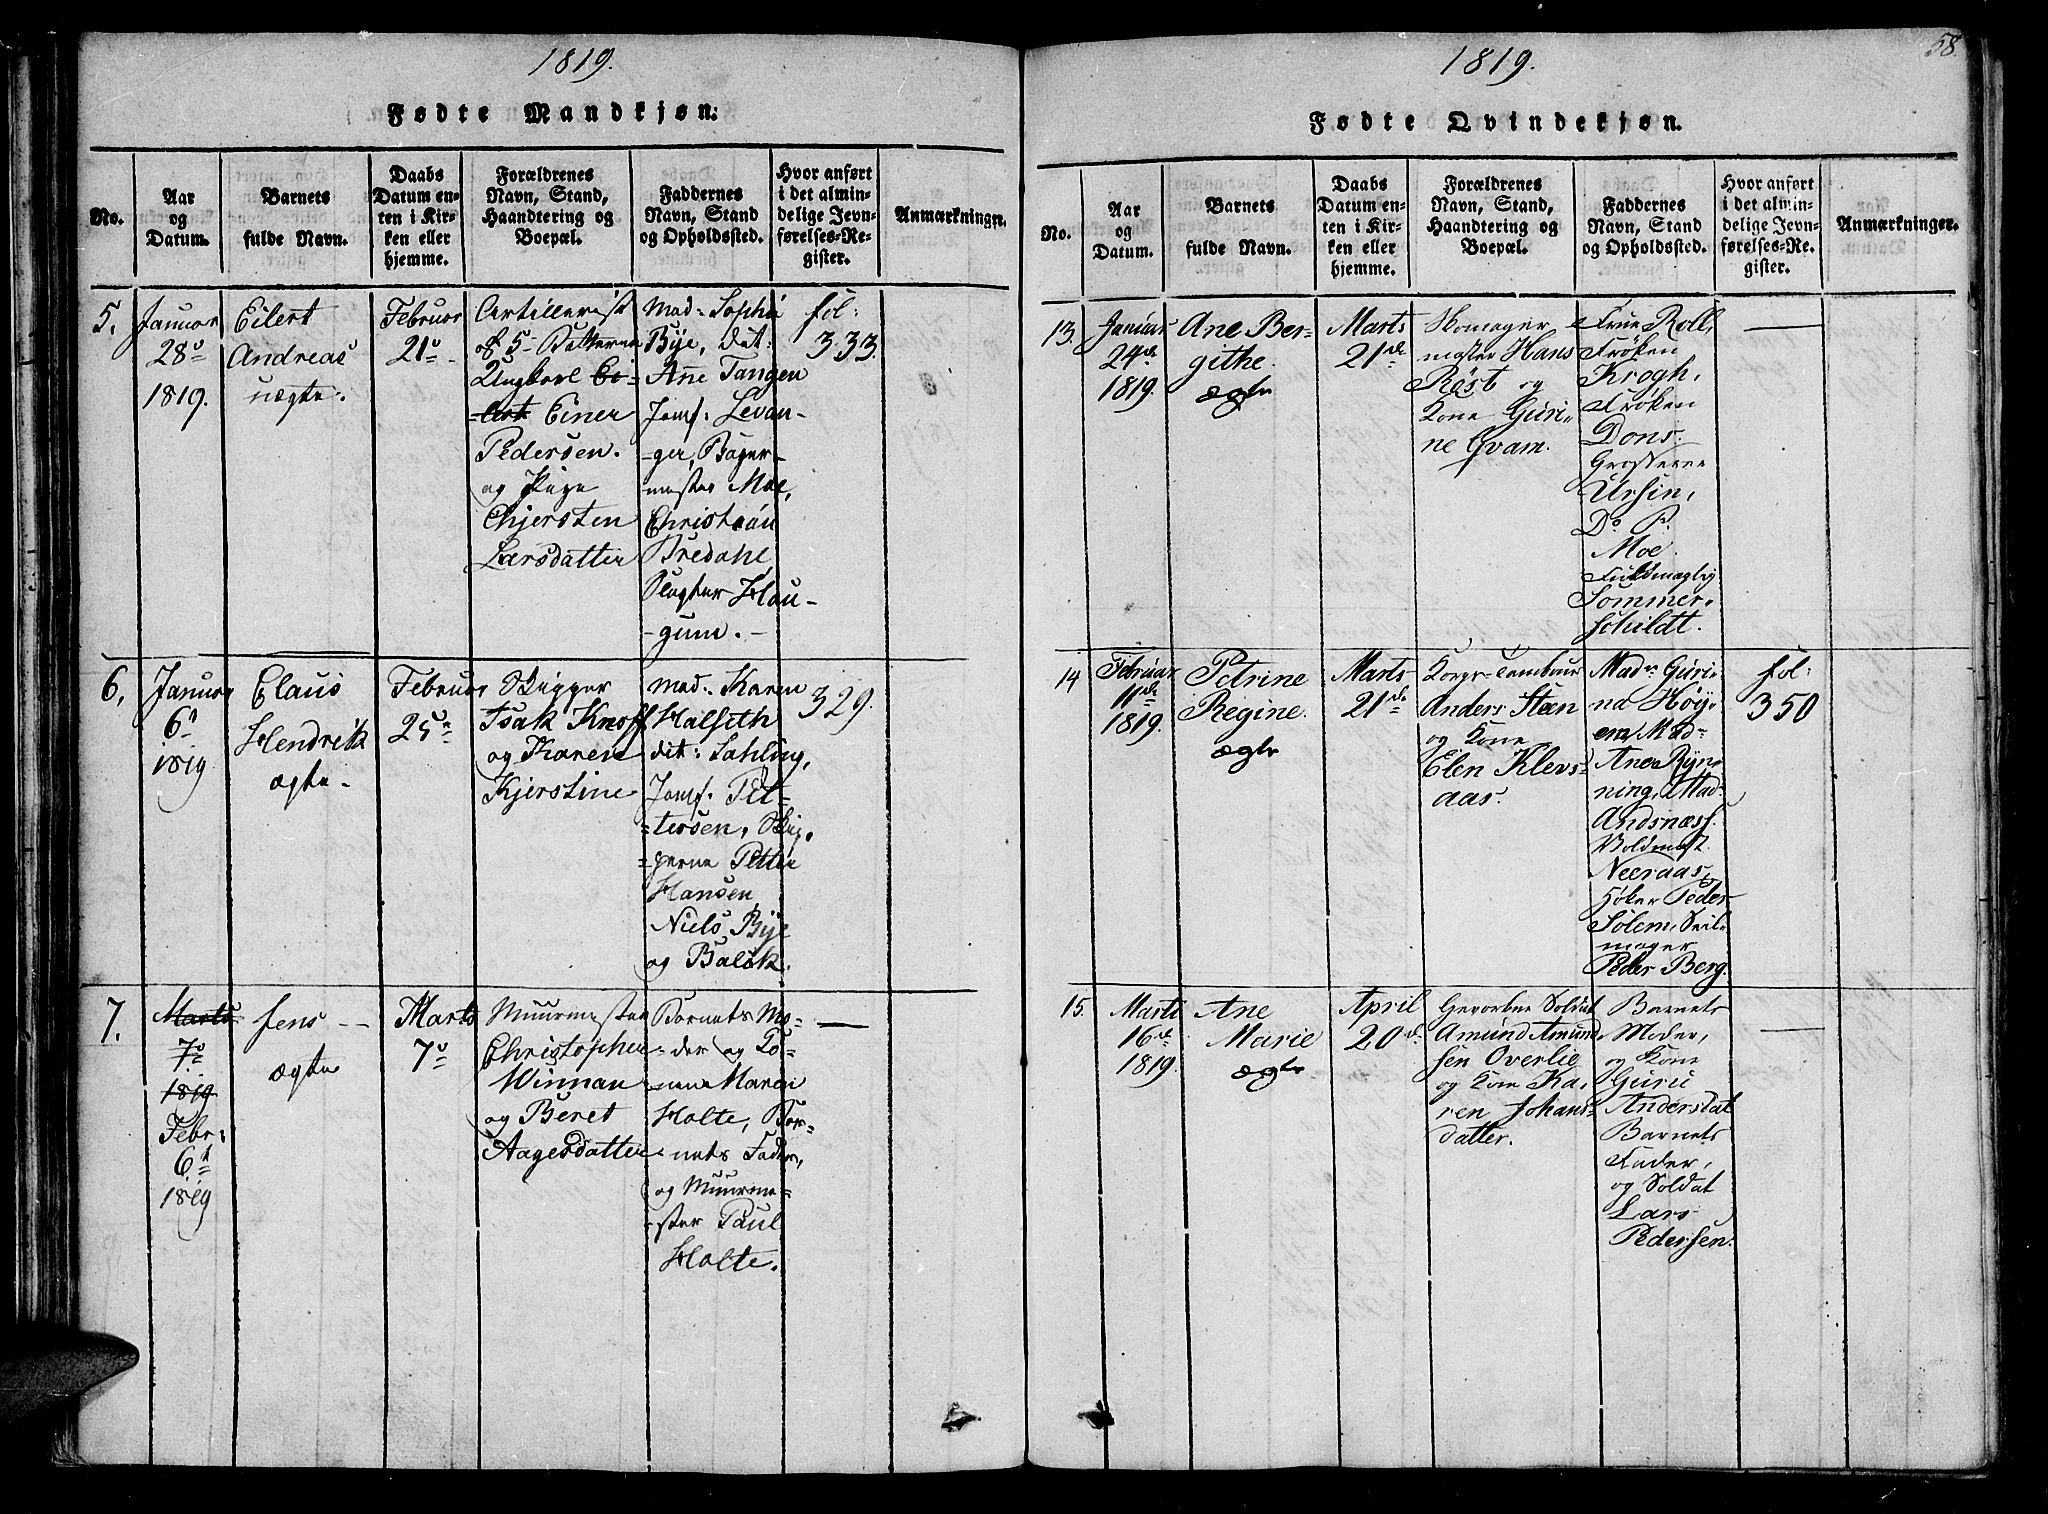 1819.
Fødte Mandkjøn.
No.
Aar
og
Datum.
Barnets
fulde Navn.
Daabs
Datum en-
ten i Kir-
ken eller
hjemme.
Forældrenes
Navn, Stand,
Haandtering og
Boepæl.
Faddernes
Navn, Stand
og Opholdssted.
Hvor anført
i det almin-
delige Jevn-
førelses-Re-
gister.
Anmærkninger.
5.
Januar
28
1819.
Eilert
Andreas
uægte.
Februar
21
Artillerist
af 5 Batterie
Ungkarl Ei-
lert Einer
Pedersen.
og Pige
Chjersten
Larsdatter
Mad: Sophia
Bye, det:
Ane Tangen
Jomf: Levan-
ger, Bager-
mester Moe,
Christian
Bredahl,
Slagter Hau-
gum.
fol:
333.
6.
Januar
6
1819
Claus
Hendrik
ægte.
Februar
25
Skipper
Isak Knoff
og Karen
Kjerstine
Mad: Karen
Halseth
dit: Sahling,
Jomf: Pet-
tersen, Skip-
perne Petter
Hansen
Niels Bye
og Balsk.
329.
7.
Marts
7
1819
Febr:
6
1819
Jens
ægte
Marts
7
Muurmester
Christopher
Winnan
og Beret
Aagesdatter
Barnets Mo-
der og Ko-
nene Maren
Holte, Bar-
nets Fader,
og Muurme-
ster Paul
Holte.
58.
1819.
Fødte Qvindekjøn.
No.
Aar
og
Datum.
Barnets
fulde Navn.
Daabs
Datum en-
ten i Kir-
ken eller
hjemme.
Forældrenes
Navn, Stand,
Haandtering og
Boepæl.
Faddernes
Navn, Stand
og Opholdssted.
Hvor anført
i det almin-
delige Jevn-
førelses-Re-
gister.
Anmærkninger.
13.
Januar
24de
1819.
Ane Ber-
githe
ægte
Marts
21de
Skomager
mester Hans
Røst og
Kone Guri-
ne Qvam.
Frue Roll,
Frøken
Krogh,
Frøken
Dons.
Ursin,
Do P.
Moe.
Fuldmægtig
Sommer-
schildt.
14
Februar
11de
1819.
Petrine
Regine.
ægte
Marts
21de
Korps-Tambuur
Anders Steen
og Kone
Elen Klevs-
aas.
Mad: Guri-
na Høy-
em, Mad-
Ane Ryn-
ning, Mad-
Andsnæss.
Voldmest.
Neeraas,
Høker Peder
Solem, Seil-
mager
Peder Berg.
fol:
350
15.
Marti
16de
1819.
Ane
Marie
ægte
April
20de
Gevorben Soldat
Amund Amund-
sen Overlie
og Kone Ka-
ren Johans-
datter.
Barnets
Moder,
og Kone
Guru
Andersdat
Barnets
Fader,
og Soldat
Lars
Pedersen.